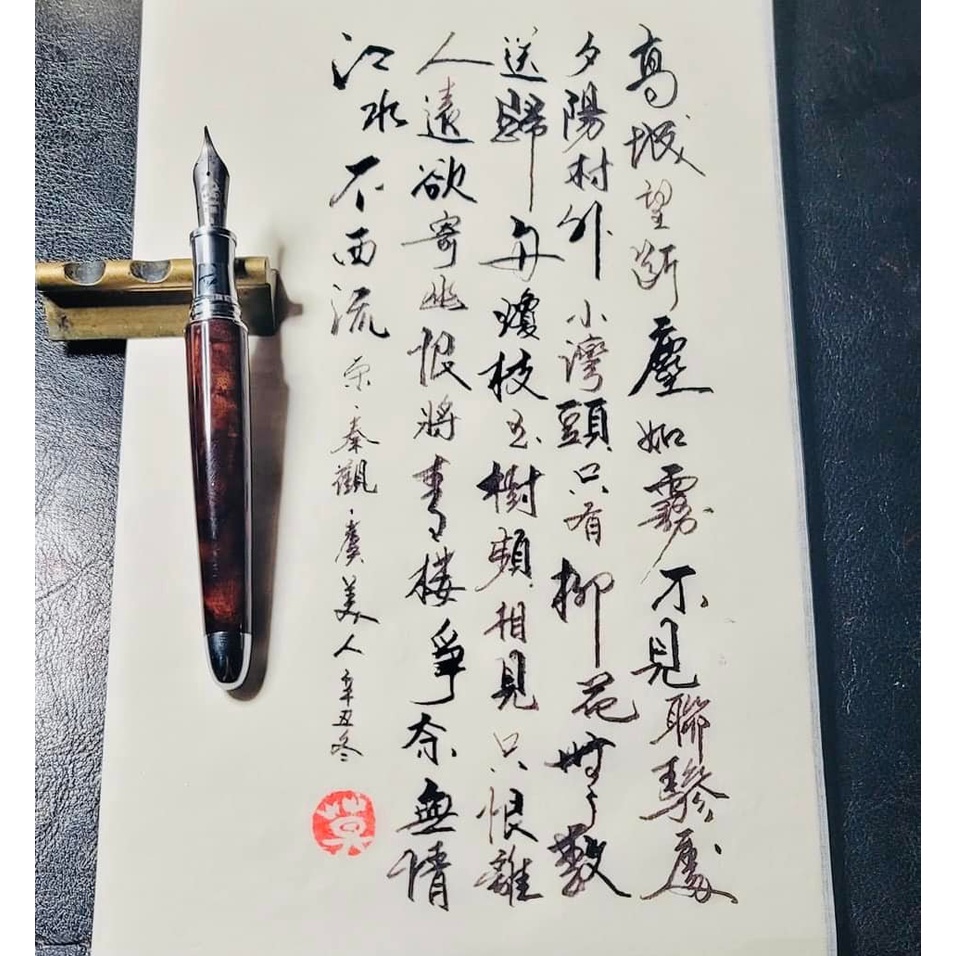 高城望斷塵如霧不見聯驂處
夕陽村外小灣頭只有柳花無數
送歸舟瓊枝玉樹頻相見只恨離
人遠欲寄幽恨將書樓爭奈無情
江水不西流 宋·秦觀·虞美人 辛丑冬